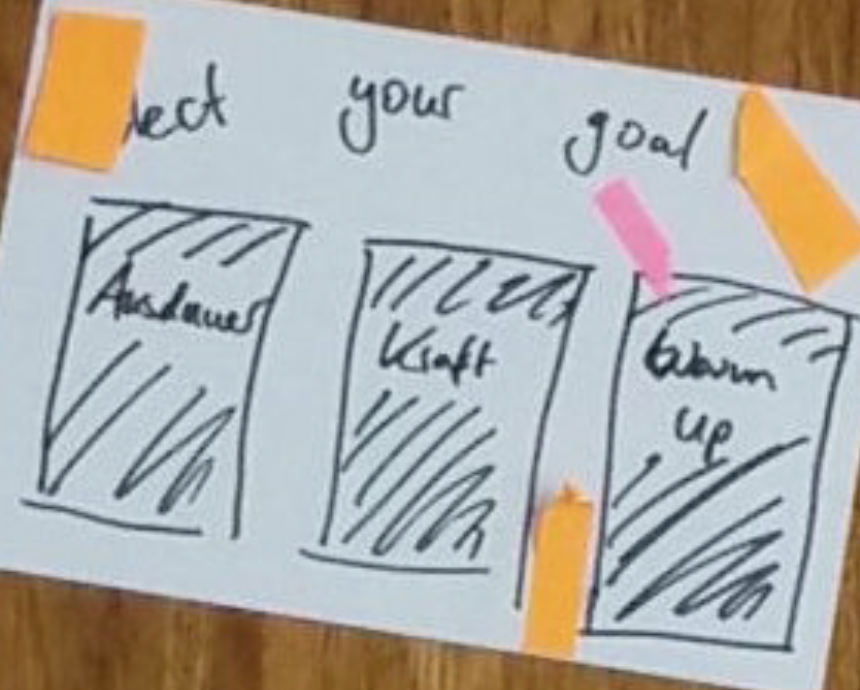 lect your goal
Ausdauer
Kraft
Warm
up